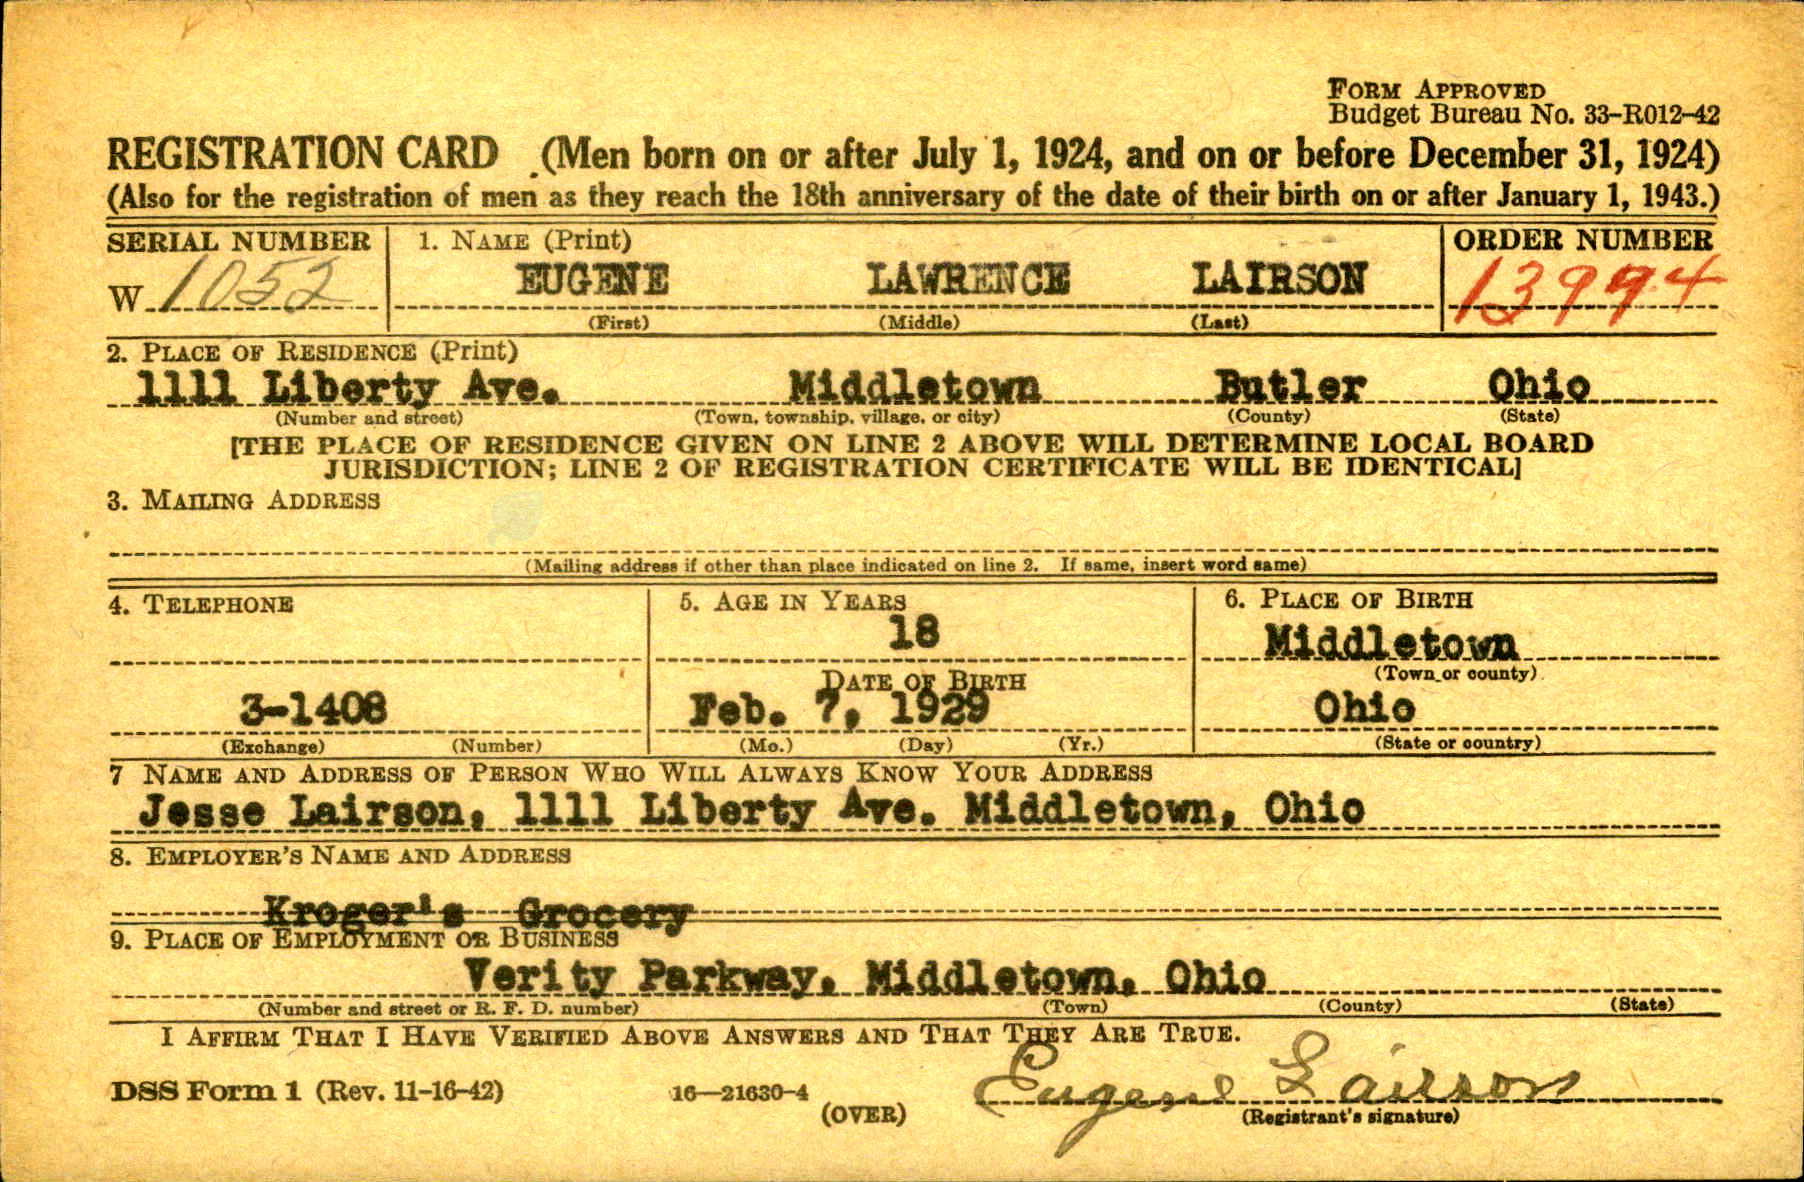 FORM APPROVED
Budget Bureau No. 33-R012-42
REGISTRATION CARD (Men born on or after July 1, 1924, and on or before December 31, 1924)
(Also for the registration of men as they reach the 18th anniversary of the date of their birth on or after January 1, 1943.)
SERIAL NUMBER 1. NAME (Print) ORDER NUMBER
W 1052 EUGENE LAWRENCE LAIRSON 13994
(First) (Middle) (Last)
2. PLACE OF RESIDENCE (Print)
1111 Liberty Ave. Middletown Butler Ohio
(Number and street) (Town, township, village, or city) (County) (State)
[THE PLACE OF RESIDENCE GIVEN ON LINE 2 ABOVE WILL DETERMINE LOCAL BOARD
JURISDICTION; LINE 2 OF REGISTRATION CERTIFICATE WILL BE IDENTICAL]
3. MAILING ADDRESS
(Mailing address if other than place indicated on line 2. If same, insert word same)
4. TELEPHONE 5. AGE IN YEARS 6. PLACE OF BIRTH
18 Middletown
(Town or county)
DATE OF BIRTH
3-1408 Feb. 7, 1929 Ohio
(Exchange) (Number) (Mo.) (Day) (Yr.) (State or country)
7 NAME AND ADDRESS OF PERSON WHO WILL ALWAYS KNOW YOUR ADDRESS
Jesse Lairson, 1111 Liberty Ave. Middletown, Ohio
8. EMPLOYER'S NAME AND ADDRESS
Kroger's Grocery
9. PLACE OF EMPLOYMENT OR BUSINESS
Verity Parkway, Middletown, Ohio
(Number and street or R. F. D. number) (Town) (County) (State)
I AFFIRM THAT I HAVE VERIFIED ABOVE ANSWERS AND THAT THEY ARE TRUE.
DSS Form 1 (Rev. 11-16-42) 16—21630-4 Eugene Lairson
(OVER) (Registrant's signature)